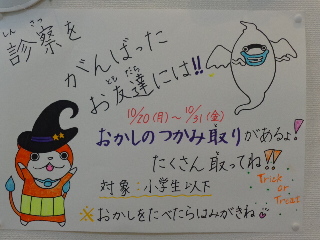 診察を
しん さつ
がんばった
お友達には!!
とも だち
10/20(月)～10/31(金)
おかしのつかみ取りがあるよ!
たくさん取ってね!!
Trick
or
Treat
対象:小学生以下
※おかしをたべたらはみがきね